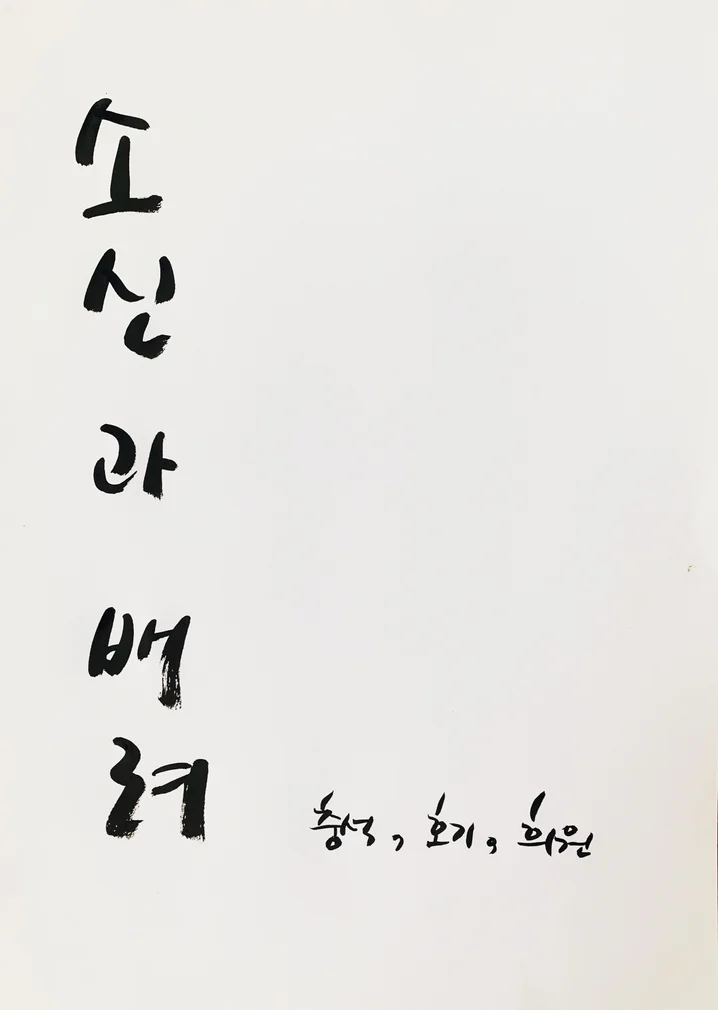 소신과 배려
충석, 호기, 희원